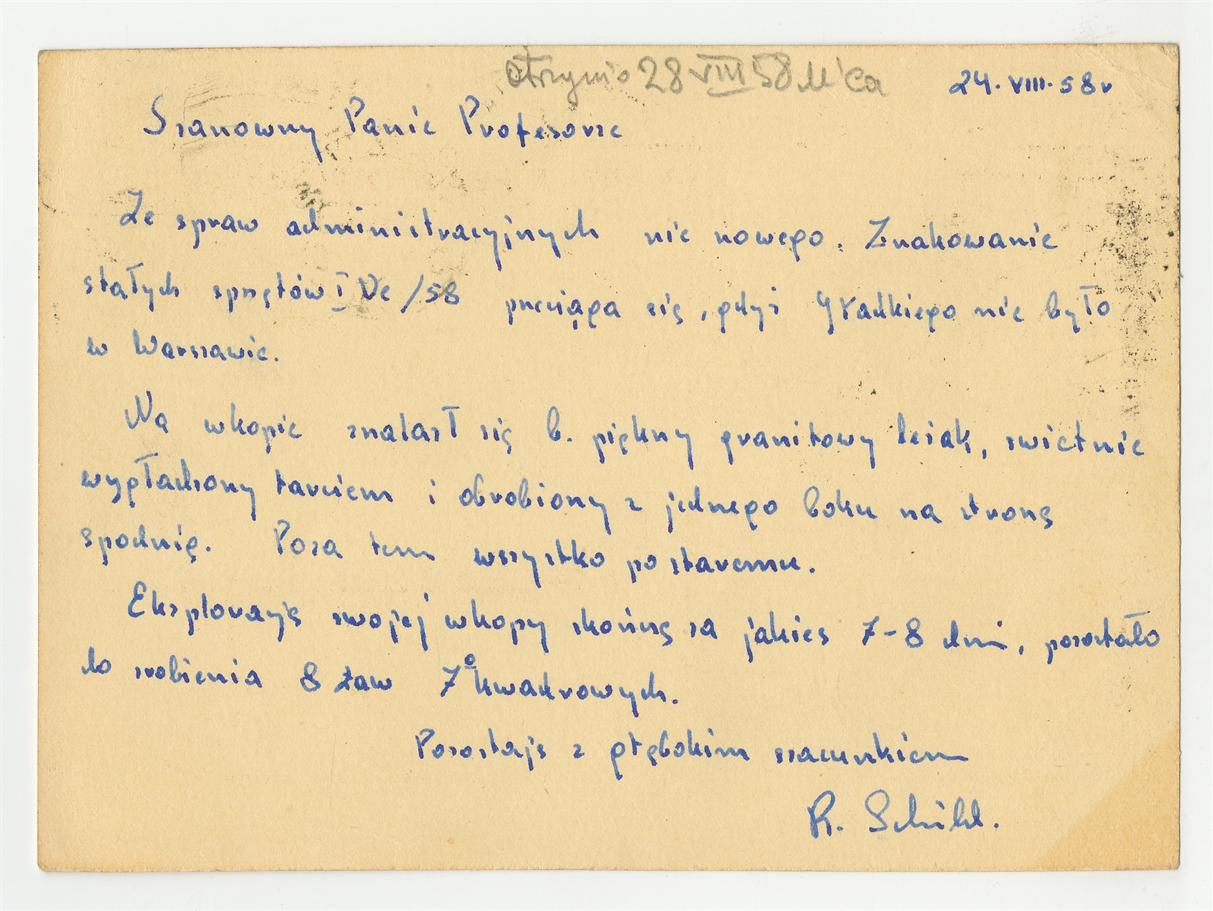 otrzym. 28 VIII 58
24. VIII. 58 r
Szanowny Panie Profesorze
Ze spraw administracyjnych nic nowego. Znakowanie
stałych sprzętów /58 przeciąga się, gdyż Gradkiego nie było
w Warszawie.
Na wkopie znalazł się b. piękny granitowy leżak, swietnie
wypłachony tarciem i obrobiony z jednego boku na stronę
spodnię. Poza tem wszystko po staremu.
Eksplorację swojej wkopy skończę za jakies 7-8 dni, pozostało
do zrobienia 8 żaw 7º kwadrowych.
Pozostaję z głębokim szacunkiem
R. Schild.